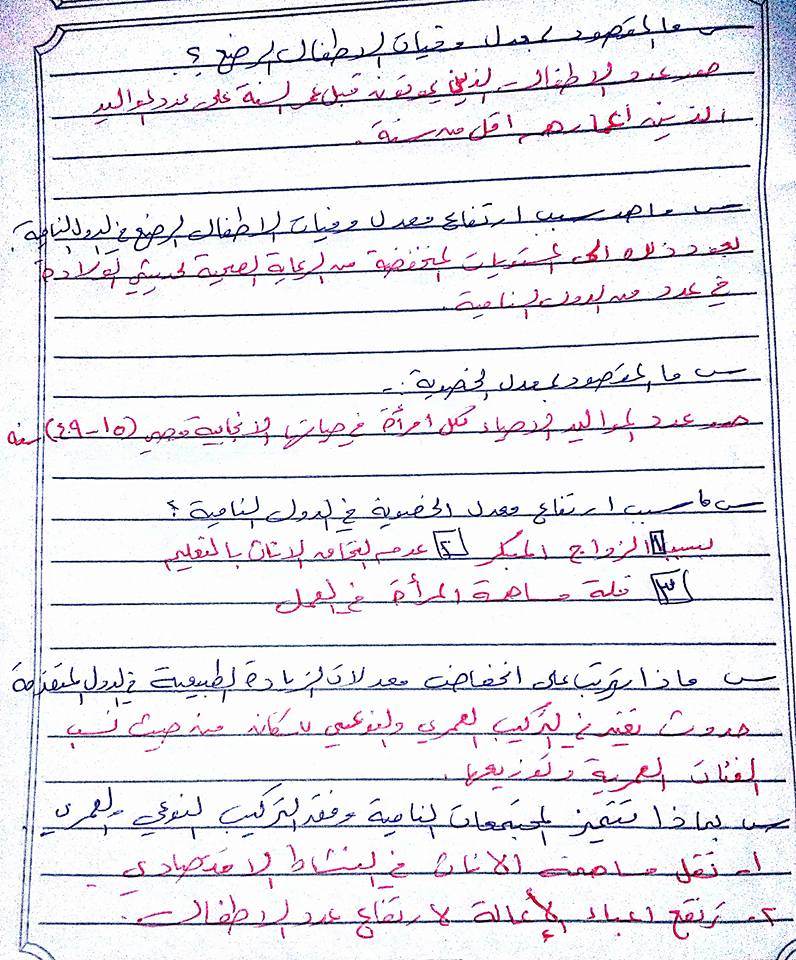 س ما المقصود بمعدل وفيات الاطفال الرضع ؟
هو عدد الاطفال الذين يموتون قبل عمر السنة على عدد المواليد
الذين أعمارهم اقل من سنة .
س ما هو سبب ارتفاع معدل وفيات الاطفال الرضع في الدول النامية .
يعود ذلك الى المستويات المنخفضة من الرعاية الصحية لحديثي الولادة
في عدد من الدول النامية .
س ما المقصود بمعدل الخصوبة :-
هو عدد المواليد الاحياء لكل امرأة في حياتها الانجابية وهي (١٥-٤٩) سنه
س ما سبب ارتفاع معدل الخصوبة في الدول النامية ؟
بسبب ١ الزواج المبكر ٢ عدم التحاق الاناث بالتعليم
٣ قلة مساهمة المرأة في العمل
س ماذا يترتب على انخفاض معدلات الزيادة الطبيعية في الدول المتقدمة
حدوث تغير في التركيب العمري والنوعي للسكان من حيث نسب
الفئات العمرية وتوزيعها .
س بماذا تتميز المجتمعات النامية وفقد التركيب النوعي والعمري
١- تقل مساهمة الاناث في النشاط الاقتصادي
٢- ترتفع اعباء الإعالة لارتفاع عدد الاطفال .